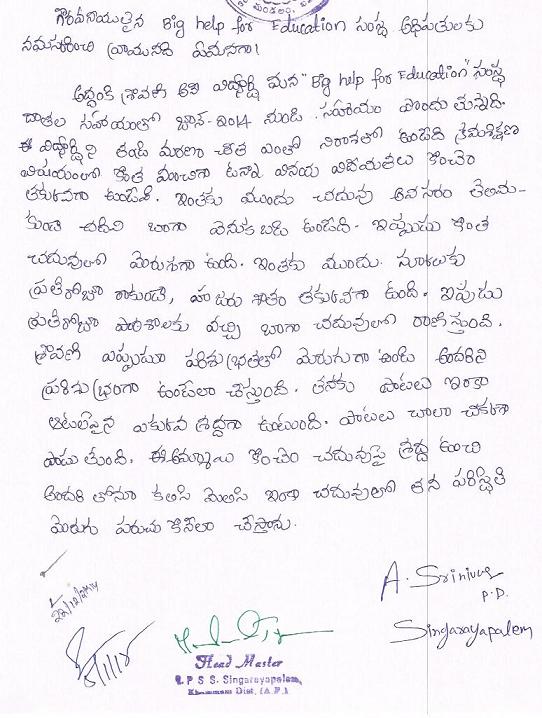 గౌరవనీయులైన Big help for Education సంస్థ అధిపతులకు
నమస్కరించి వ్రాయునది ఏమనగా!
అద్దంకి శ్రావణి అను విద్యార్థి మన "Big help for Education" సంస్థ
దాతల సహాయంతో జూన్-2014 నుండి సహాయం పొందుతున్నది.
ఈ విద్యార్థిని తండ్రి మరణం చేత ఎంతో నిరాశతో ఉండేది క్రమశిక్షణ
విషయంలో కొంత మంచిగా ఉన్నా వినయ విధేయతలు కొంచెం
తక్కువగా ఉండేవి. ఇంతకు ముందు చదువు అవసరం తెలియ-
కుండ చదివి బాగా వెనుకబడి ఉండేది. ఇప్పుడు కొంత
చదువులో మెరుగుగా ఉంది. ఇంతకు ముందు. స్కూలుకు
ప్రతిరోజూ రాకుండా, హాజరు శాతం తక్కువగా ఉంది. ఇపుడు
ప్రతిరోజూ పాఠశాలకు వచ్చి బాగా చదువులో రాణిస్తుంది.
శ్రావణి ఎప్పుడూ పరిశుభ్రతతో మెరుగుగా ఉంటు అందరిని
పరిశుభ్రంగా ఉండేలా చేస్తుంది. తనకు పాటలు ఇంకా
ఆటలపైన ఎక్కువ శ్రద్ధగా ఉంటుంది. పాటలు చాలా చక్కగా
పాడుతుంది. ఈ అమ్మాయి కొంచెం చదువుపై శ్రద్ధ ఉంచి
అందరితోనూ కలసి మెలసి ఇంకా చదువులో తన పరిస్థితి
మెరుగు పరుచుకొనేలా చేస్తాను.
22/12/2014
A. Srinivas
P.D.
Singarayapalem
Head Master
P S S. Singarayapalem,
Khammam Dist, (A.P.)